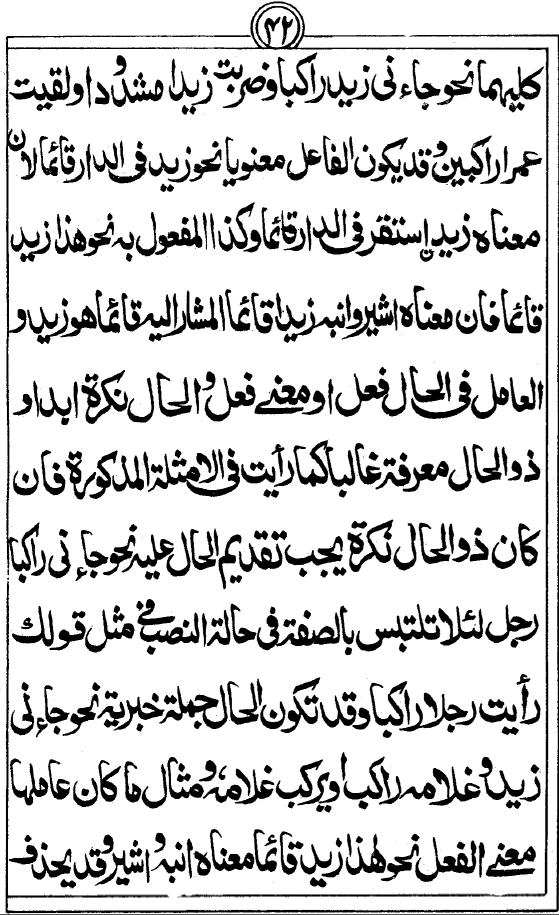 ۴۲
كليهما نحو جاءنى زيد راكبا وضربت زيدا مشدودا ولقيت
عمرا راكبين وقد يكون الفاعل معنويا نحو زيد فى الدار قائما لان
معناه زيد استقر فى الدار قائما وكذا المفعول به نحو هذا زيد
قائما فان معناه اشير وانبه زيدا قائما المشار اليه قائما هو زيد و
العامل فى الحال فعل او معنے فعل والحال نكرة ابدا و
ذو الحال معرفة غالبا كما رأيت فى الامثلة المذكورة فان
كان ذو الحال نكرة يجب تقديم الحال عليه نحو جاءنى راكبا
رجل لئلا تلتبس بالصفة فى حالة النصب فى مثل قولك
رأيت رجلا راكبا وقد تكون الحال جملة خبرية نحو جاءنى
زيد وغلامه راكب او يركب غلامه ومثال ما كان عاملها
معنے الفعل نحو هذا زيد قائما معناه انبه واشير وقد يحذف